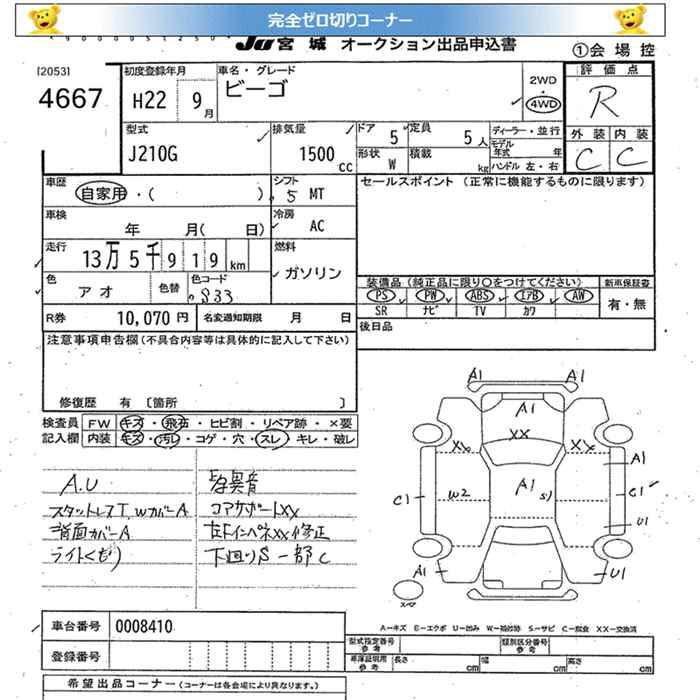 完全ゼロ切りコーナー
JU 宮 城 オークション出品申込書
①会 場 控
[2053]
4667
初度登録年月
H22 9月
車名・グレード
ビーゴ
2WD
・
4WD
評 価 点
R
外 装 内 装
C C
型式
J210G
排気量
1500 cc
ドア 5 定員 5人
形状 W 積載 kg
ディーラー・並行
モデル年式 年
ハンドル 左・右
車歴
自家用・( )
シフト
5 MT
セールスポイント (正常に機能するものに限ります)
車検
年 月( 日)
冷房
AC
走行
13万 5千 9 1 9 km
燃料
ガソリン
色
アオ
色替
色コード
S33
装備品(純正品に限り○をつけてください)
新車保証書
PS PW ABS エアB AW
SR ナビ TV カワ
有・無
R券 10,070 円
名変通知期限 月 日
後日品
注意事項申告欄(不具合内容等は具体的に記入して下さい)
修復歴 有 〔箇所 〕
検査員記入欄
FW キズ・飛石・ヒビ割・リペア跡・×要
内装 キズ・汚レ・コゲ・穴・スレ・キレ・破レ
A.U
スタットレスT,WカバーA
背面カバーA
ライトくもり
異音
コアサポートXX
左ドインペネXX修正
下廻りS 一部C
A1 A1
A1
XX
XX XX
A1
C1 W2 A1 S1 C1
U1
A1 U1
スペア
A－キズ E－エクボ U－凹み W－補修跡 S－サビ C－腐食 XX－交換済
車台番号 0008410
登録番号
型式指定番号 参考
類別区分番号 参考
車庫証明用 参考
長さ cm 幅 cm 高さ cm
希望出品コーナー(コーナーは各会場により異なります。)